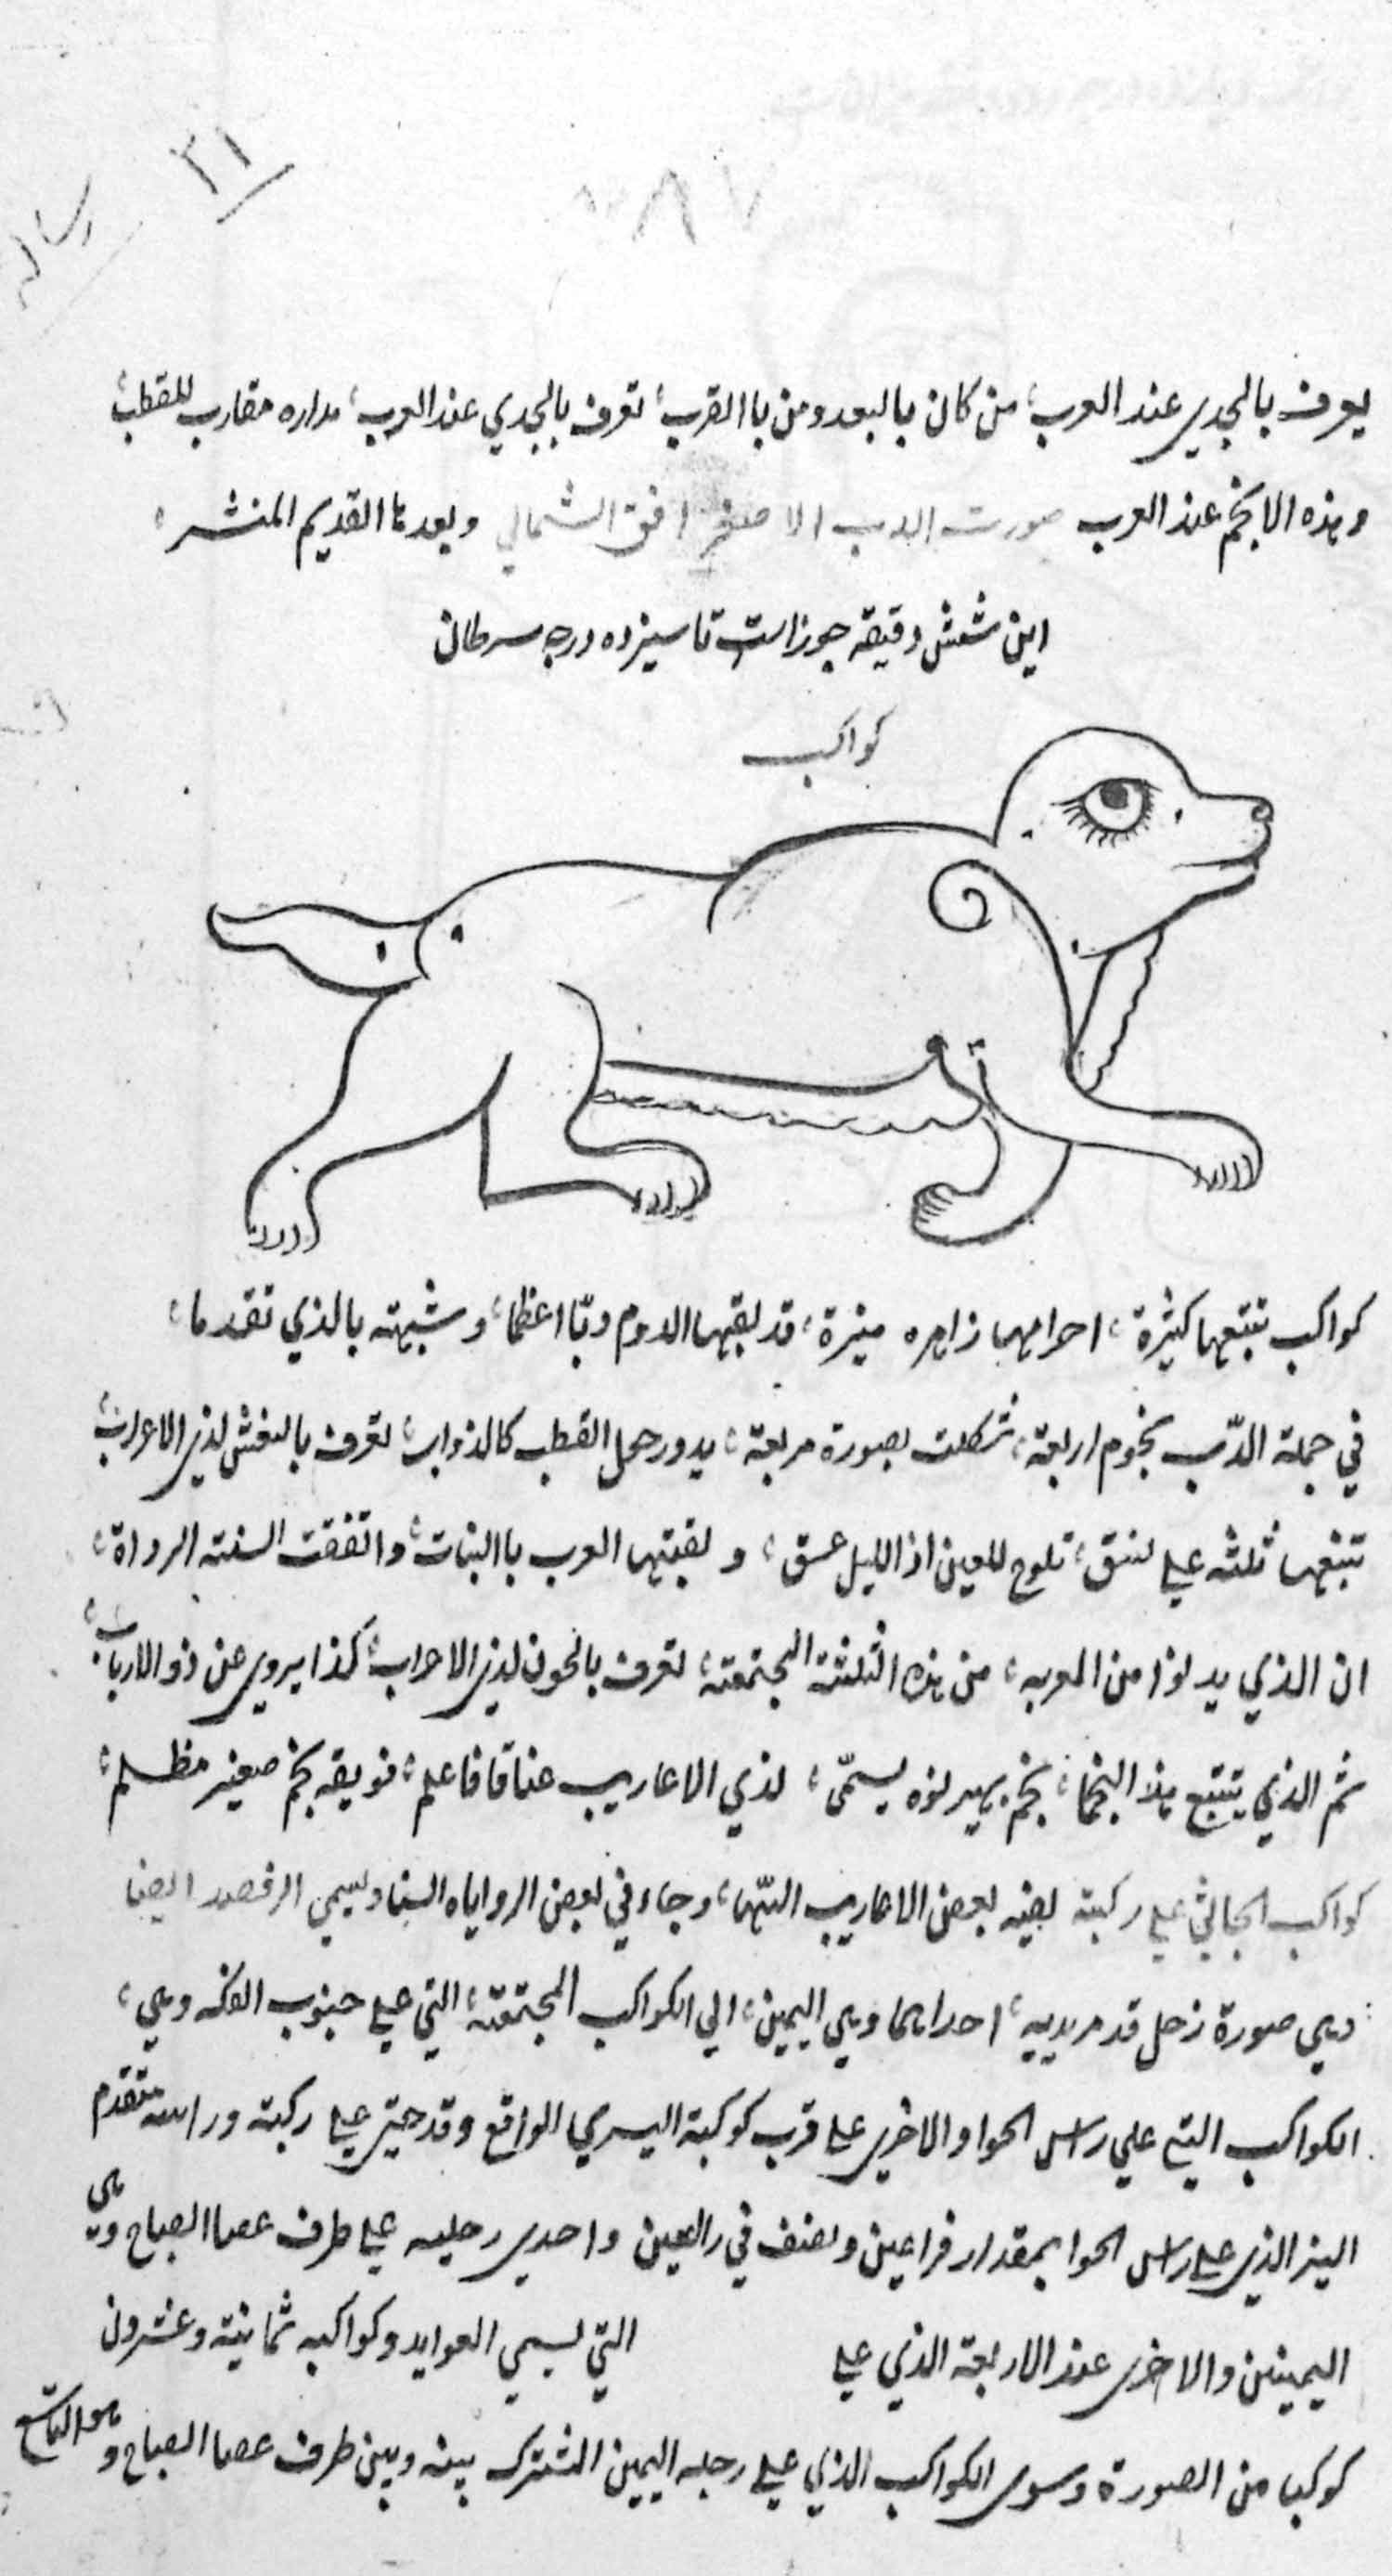 ۲۱
رساله
۸۷
يعرف بالجدي عند العرب، من كان بالبعد ومن باالقرب، تعرف بالجدي عند العرب، مداره مقارب للقطب،
وهذه الانجم عند العرب صورت الدب الاصغر افق الشمالي وبعدها القديم المنشر،
اين شش دقيقه جوزاست تا سيزده درجه سرطان
كواكب
كواكب تتبعها كثيرة، اجرامها زاهره منيرة، قد لقبها الروم دبّا اعظما، وشبهته بالذي تقدما،
في جملة الدّب نجوم اربعة، شكلت بصورة مربعة، يدور حول القطب كالدواب، تعرف بالنعش لذي الاعراب،
تتبعها ثلثه علي نسق، تلوح للعين اذ الليل غسق، و لقبتها العرب باالبنات، واتفقت السنته الرواة،
ان الذي يدنوا من المربه، من هذه الثلثة المجتمعته، تعرف بالحون لذي الاعراب، كذا يروي عن ذو الارباب،
ثم الذي يتتبع هذا النجما، نجم نوره يسمّى، لذي الاعاريب عناقا فاعلم، فويقه نجم صغير مظلم،
كواكب الجاثي علي ركبته بعض الاعاريب السّها، وجاء في بعض الرواياه السنا ويسمي الرقص ايضا
وهي صورة رجل قد مد يديه، احداهما وهي اليمين، الي الكواكب المجتمعته، التي علي جنوب الفكه وهي،
الكواكب التي علي راس الحوا والاخري علي قرب كوكبة اليسري الواقع وقد جثي علي ركبته وراسه متقدم
الينر الذي علي راس الحوا بمقدار ذراعين ونصف في رالعين واحدي رجليه علي طرف عصا الصياح وهي
اليمينين والاخري عند الاربعة الذي علي التي لسمي العوايد وكواكبه ثمانيتة وعشرون
كوكبا من الصورة وسوي الكواكب الذي علي رجله اليمين المشترك بينه وبين طرف عصا الصياح وهو التاسع